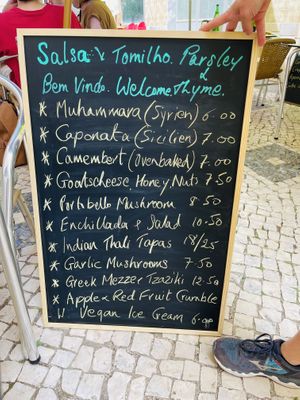 Salsa & Tomilho. Parsley
&
Bem Vindo. Welcome Thyme.
* Muhammara (Syrien) 6.00
* Caponata (Sicilien) 7.00
* Camembert (Ovenbaked) 7.00
* Goatscheese, Honey, Nuts 7.50
* Portobello Mushroom 8.50
* Enchillada & Salad 10.50
* Indian Thali Tapas 18/25
* Garlic Mushrooms 7.50
* Greek Mezzer Tzaziki 12.50
* Apple & Red Fruit Crumble
W Vegan Ice Cream 6.00